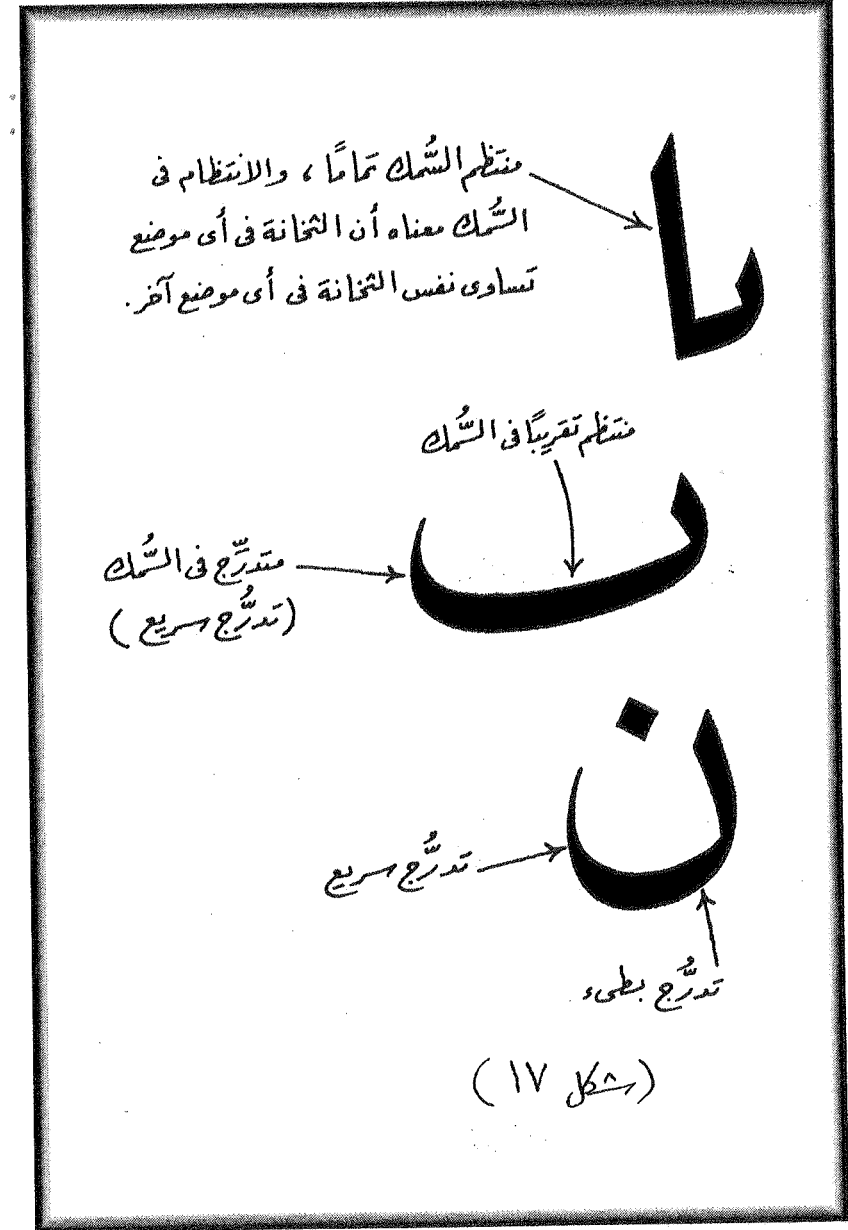 منتظم السُّمك تمامًا ، والانتظام فى
السُّمك معناه أن الثخانة فى أى موضع
تساوى نفس الثخانة فى أى موضع آخر .
ىا
منتظم تقريبًا فى السُّمك
ٮ
متدرِّج فى السُّمك
(تدرُّج سريع)
ن
تدرُّج سريع
تدرُّج بطىء
(شكل ١٧)